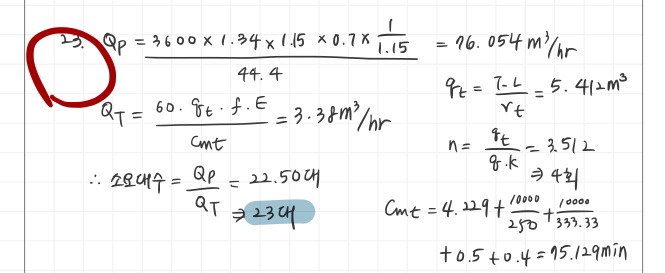 23. Qp = 3600 × 1.34 × 1.15 × 0.7 × 1/1.15 / 44.4 = 76.054 m³/hr
qt = T-L / rt = 5.412m³
QT = 60. qt. f. E / Cmt = 3.38m³/hr
n = qt / q.k = 3.512
⇒ 4회
∴ 소요대수 = Qp / QT = 22.50대
⇒ 23대
Cmt = 4.229 + 10000/250 + 10000/333.33
+ 0.5 + 0.4 = 75.129min